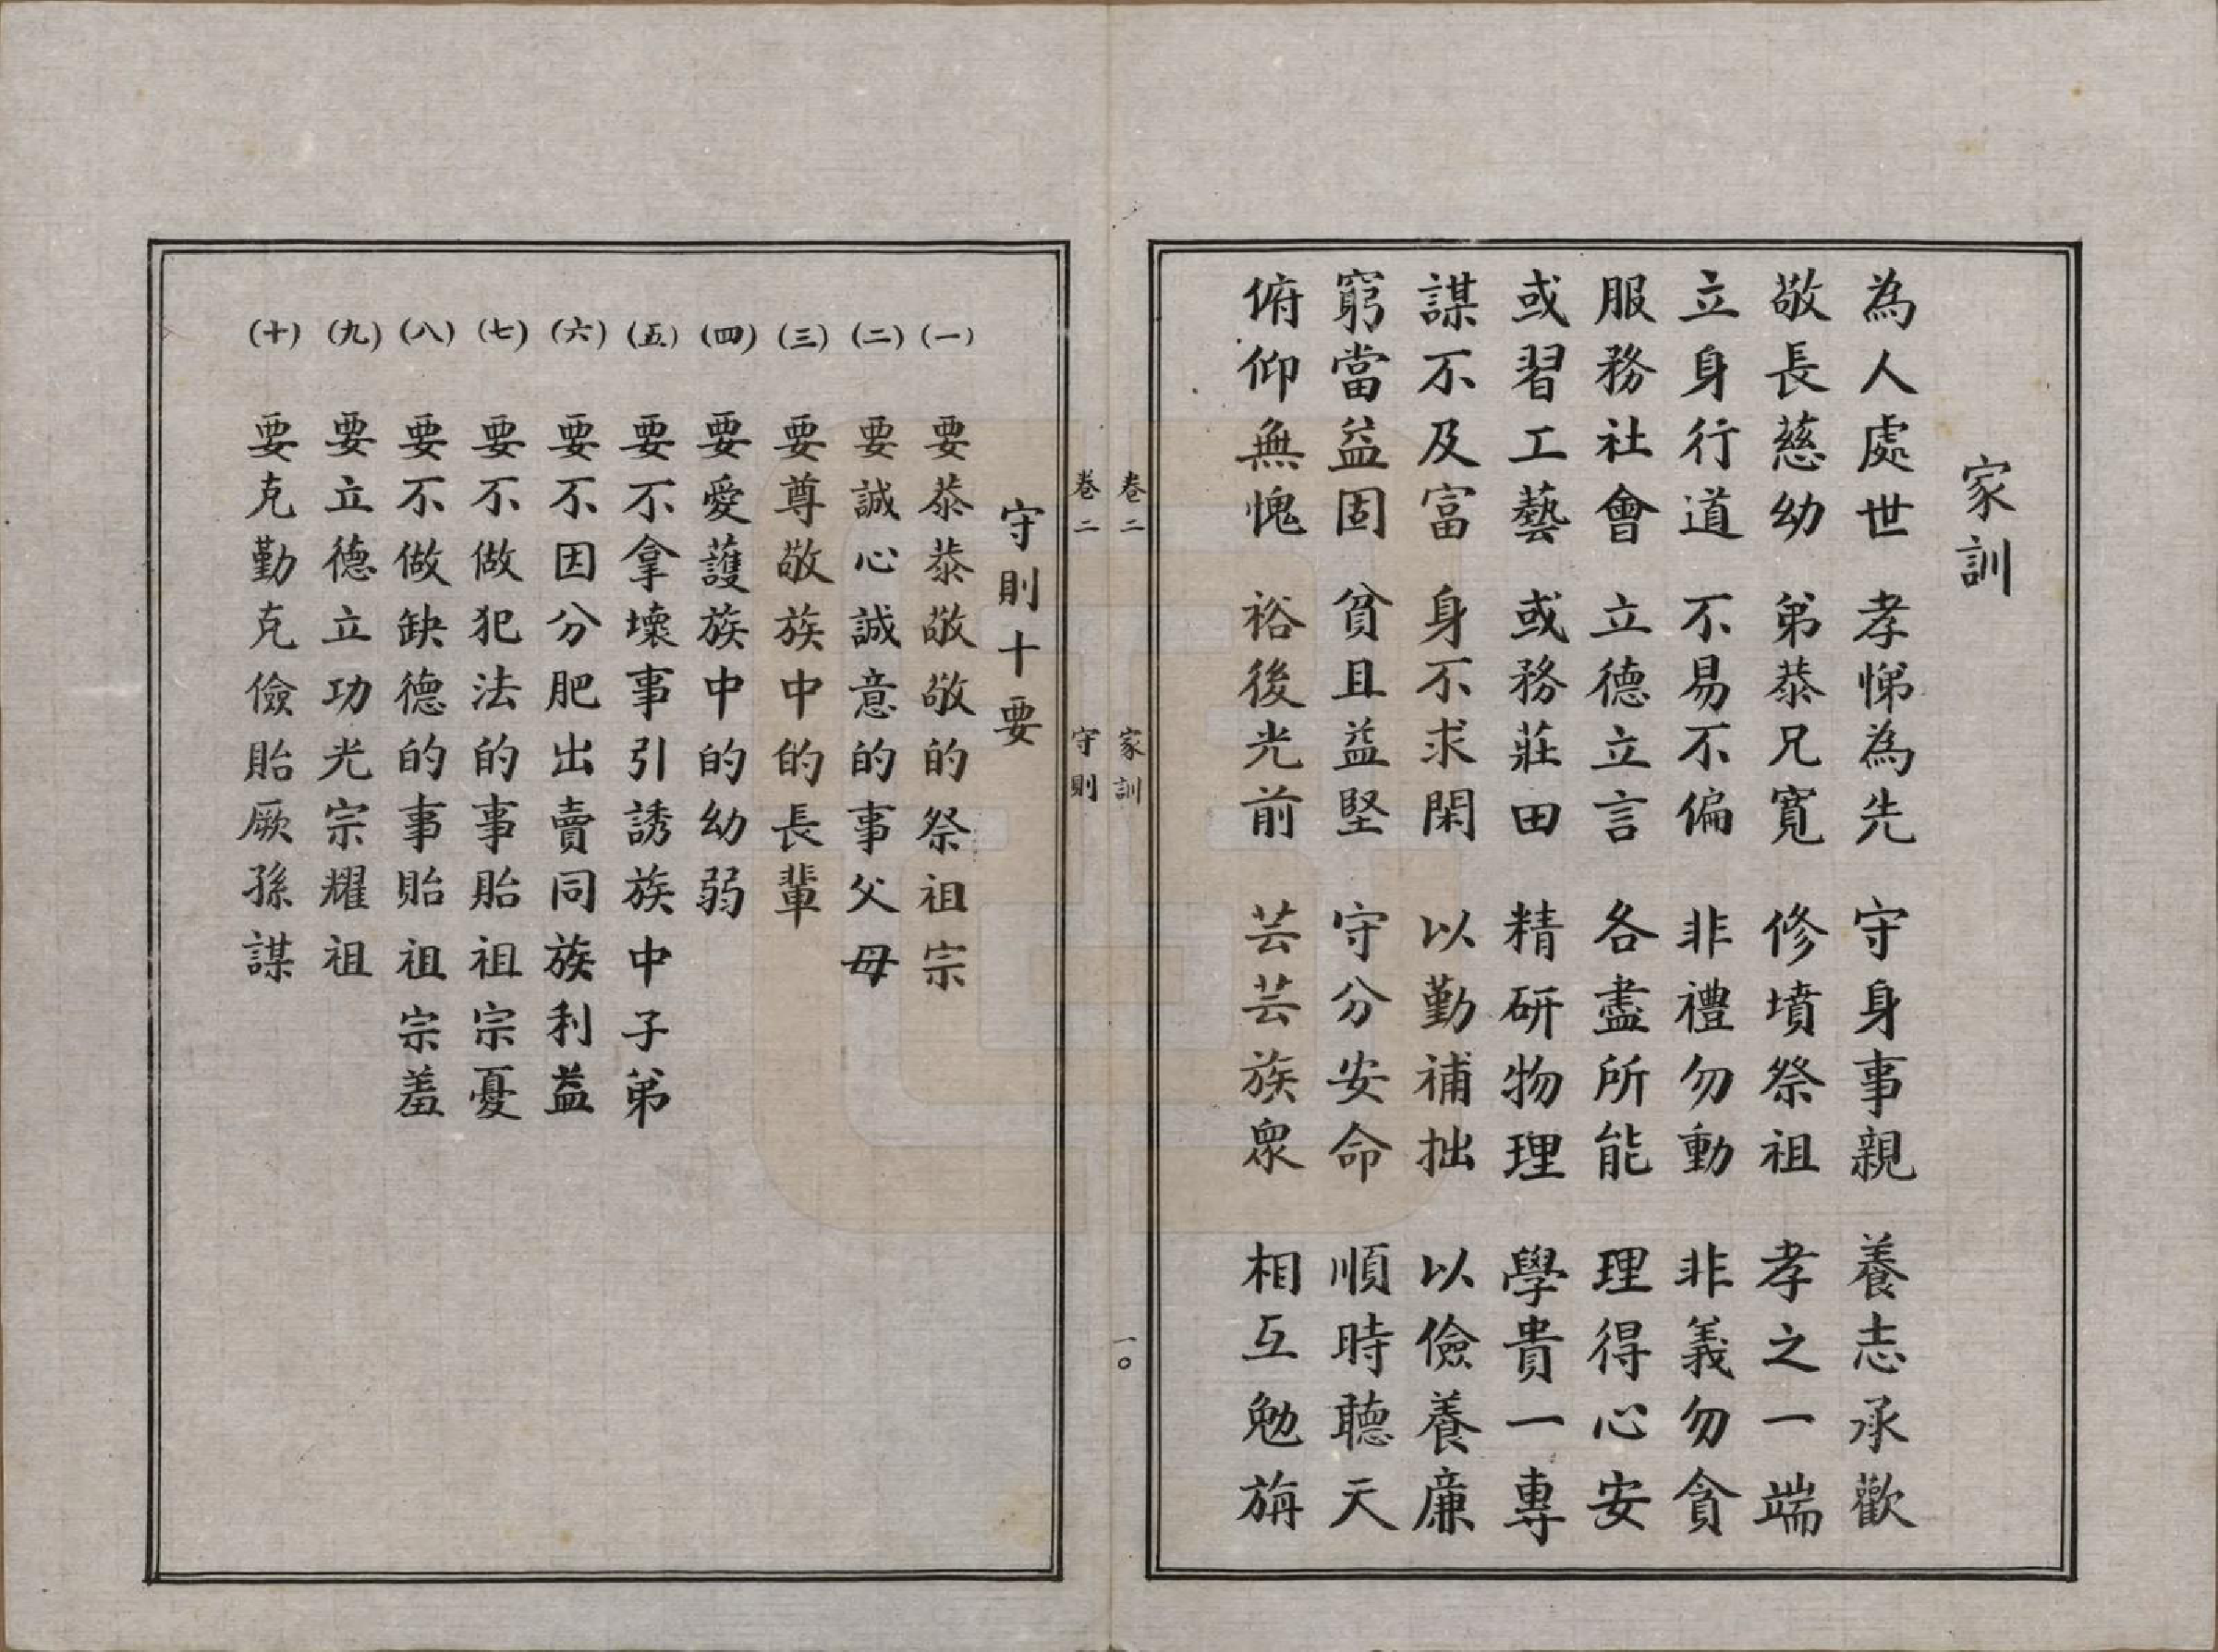 家訓
為人處世 孝悌為先 守身事親 養志承歡
敬長慈幼 弟恭兄寬 修墳祭祖 孝之一端
立身行道 不易不偏 非禮勿動 非義勿貪
服務社會 立德立言 各盡所能 理得心安
或習工藝 或務莊田 精研物理 學貴一專
謀不及富 身不求閑 以勤補拙 以儉養廉
窮當益固 貧且益堅 守分安命 順時聽天
俯仰無愧 裕後光前 芸芸族眾 相互勉旃
卷二 家訓 一〇
卷二 守則
守則十要
(一) 要恭恭敬敬的祭祖宗
(二) 要誠心誠意的事父母
(三) 要尊敬族中的長輩
(四) 要愛護族中的幼弱
(五) 要不拿壞事引誘族中子弟
(六) 要不因分肥出賣同族利益
(七) 要不做犯法的事貽祖宗憂
(八) 要不做缺德的事貽祖宗羞
(九) 要立德立功光宗耀祖
(十) 要克勤克儉貽厥孫謀